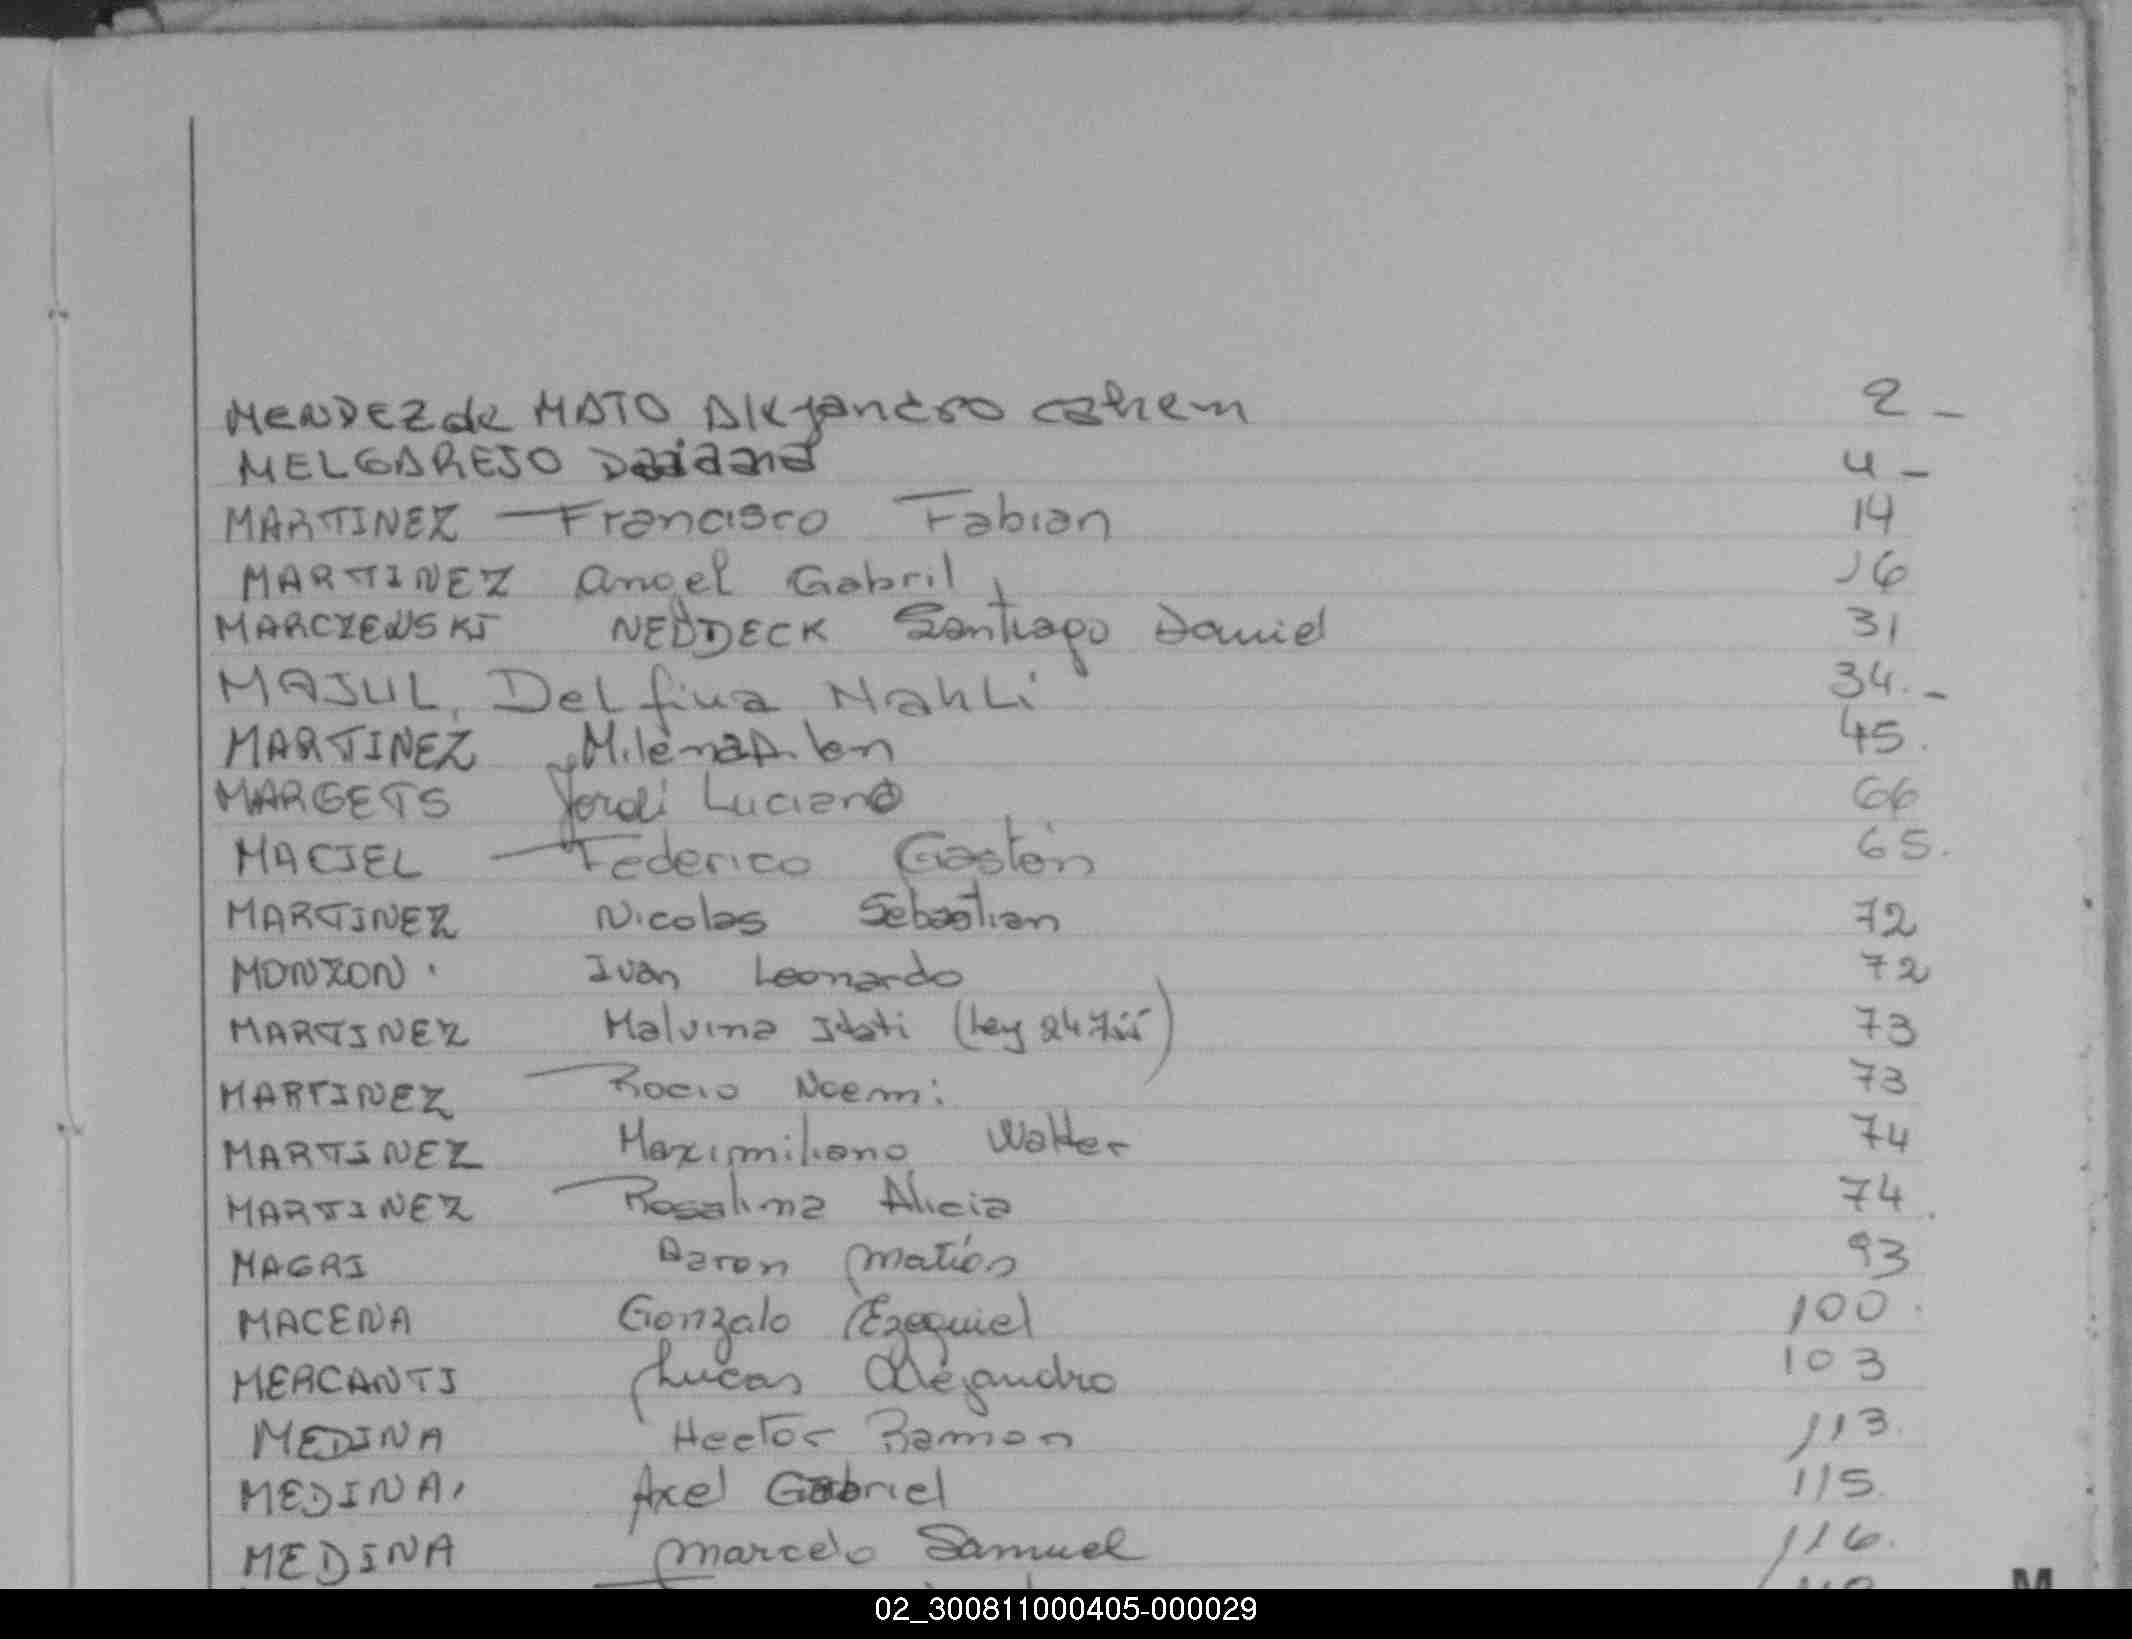 MENDEZ de MATO Alejandro 2 -
MELGAREJO Daiana 4 -
MARTINEZ Francisco Fabian 14
MARTINEZ Angel Gabril 16
MARCZEWSKI NEDDECK Santiago Daniel 31
MAJUL, Delfina Nahli 34.-
MARTINEZ 45.
MARGETS Jordi Luciano 66
MACIEL Federico Gastón 65.
MARTINEZ Nicolas Sebastian 72
MONZON Ivan Leonardo 72
MARTINEZ Malvina Itati (Ley 73
MARTINEZ Rocio Noemi 73
MARTINEZ Maximiliano Walter 74
MARTINEZ Rosalina Alicia 74
MAGRI Aaron Matías 93
MACENA Gonzalo Ezequiel 100
MERCANTI Lucas Alejandro 103
MEDINA Hector Ramon 113.
MEDINA, Axel Gabriel 115
MEDINA Marcelo Samuel 116.
M
02_300811000405-000029